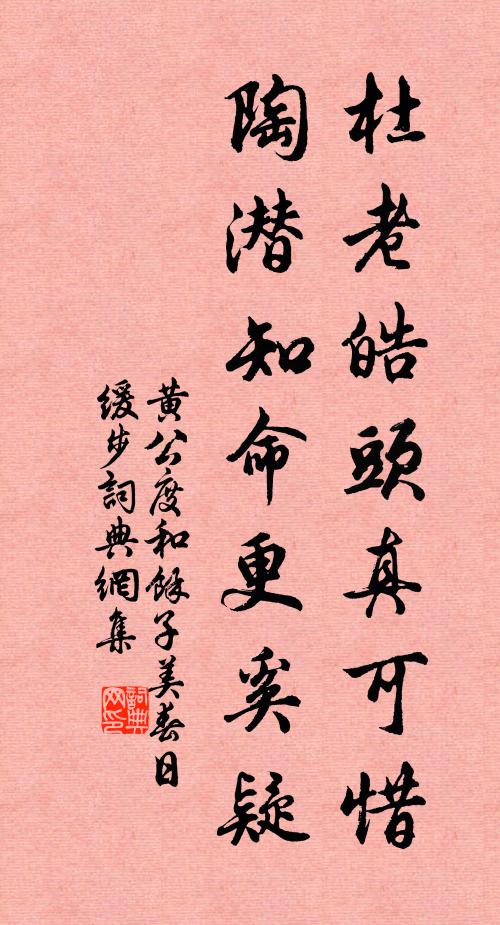 杜老皓頭真可惜
陶潜知命更奚疑
黃公度和餘子美春日
緩步詞典網集
詞典
网印